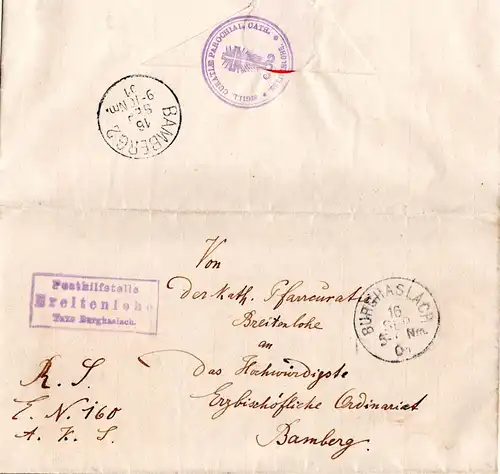 SIGILL. CURATIAE PAROCHIAL. CATH.
BAMBERG 2
16
SEP
9-10 Nm.
01
Posthilfstelle
Breitenlohe
Taxe Burghaslach.
Von
der kath. Pfarrcuratie
Breitenlohe
an
das Hochwürdigste
Erzbischöfliche Ordinariat
Bamberg.
BURGHASLACH
16
SEP
Nm.
R. S.
E. N. 160
A. K. S.